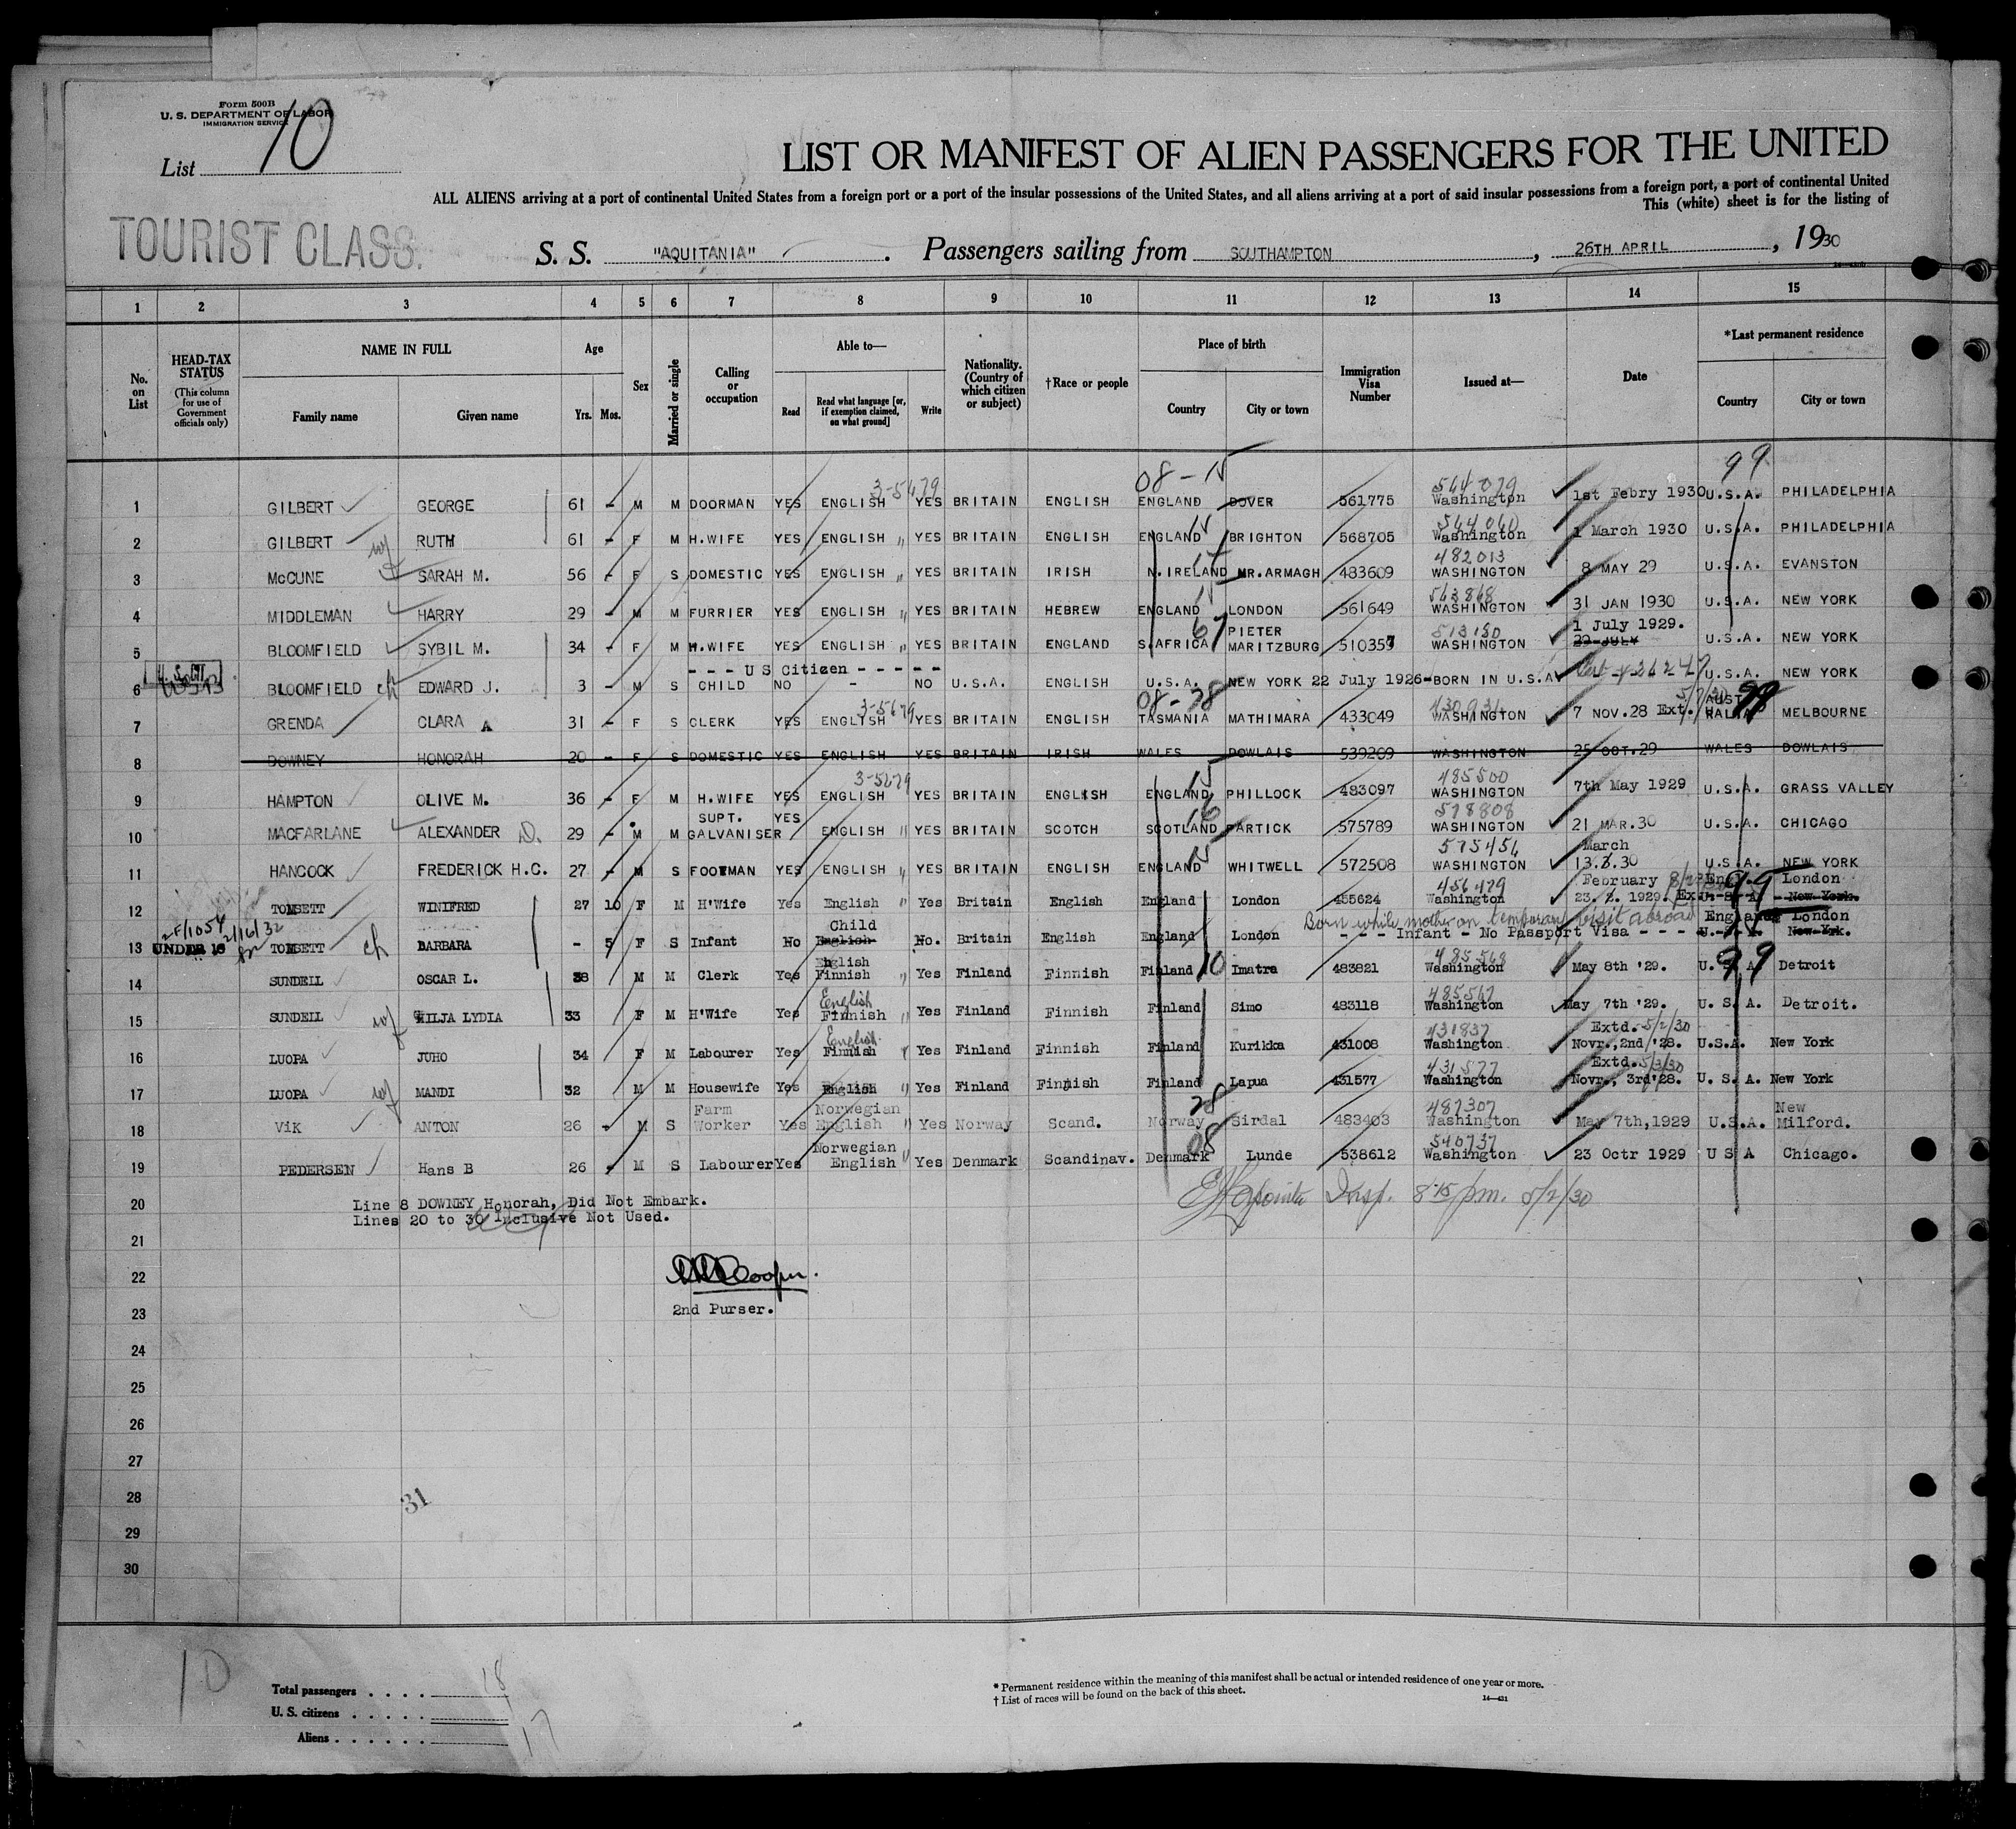 Form 500B
U. S. DEPARTMENT OF LABOR
IMMIGRATION SERVICE
List 10
LIST OR MANIFEST OF ALIEN PASSENGERS FOR THE UNITED
ALL ALIENS arriving at a port of continental United States from a foreign port or a port of the insular possessions of the United States, and all aliens arriving at a port of said insular possessions from a foreign port, a port of continental United
This (white) sheet is for the listing of
TOURIST CLASS.
S. S. "AQUITANIA". Passengers sailing from SOUTHAMPTON, 26TH APRIL, 1930
1 2 3 4 5 6 7 8 9 10 11 12 13 14 15
No. on List
HEAD-TAX STATUS
(This column for use of Government officials only)
NAME IN FULL
Family name
Given name
Age
Yrs. Mos.
Sex
Married or single
Calling or occupation
Able to—
Read
Read what language [or, if exemption claimed, on what ground]
Write
Nationality. (Country of which citizen or subject)
†Race or people
Place of birth
Country
City or town
Immigration Visa Number
Issued at—
Date
*Last permanent residence
Country
City or town
08 - 15 99
3-5479 564079
1 GILBERT GEORGE 61 - M M DOORMAN YES ENGLISH YES BRITAIN ENGLISH ENGLAND DOVER 561775 Washington 1st Febry 1930 U.S.A. PHILADELPHIA
2 GILBERT wf RUTH 61 - F M H.WIFE YES ENGLISH " YES BRITAIN ENGLISH ENGLAND BRIGHTON 568705 Washington 1 March 1930 U.S.A. PHILADELPHIA
482013
3 McCUNE SARAH M. 56 - F S DOMESTIC YES ENGLISH " YES BRITAIN IRISH N.IRELAND MR.ARMAGH 483609 WASHINGTON 8 MAY 29 U.S.A. EVANSTON
563868
4 MIDDLEMAN HARRY 29 - M M FURRIER YES ENGLISH " YES BRITAIN HEBREW ENGLAND LONDON 561649 WASHINGTON 31 JAN 1930 U.S.A. NEW YORK
67 PIETER 513150 1 July 1929.
5 BLOOMFIELD SYBIL M. 34 - F M H.WIFE YES ENGLISH " YES BRITAIN ENGLAND S.AFRICA MARITZBURG 510357 WASHINGTON 29 JULY U.S.A. NEW YORK
- - - U S Citizen - - - - -
6 BLOOMFIELD ch EDWARD J. 3 - M S CHILD NO - NO U.S.A. ENGLISH U.S.A. NEW YORK 22 July 1926-BORN IN U.S.A. U.S.A. NEW YORK
3-5679 08-28 5/7/30 AUST
7 GRENDA CLARA A 31 - F S CLERK YES ENGLISH YES BRITAIN ENGLISH TASMANIA MATHIMARA 433049 WASHINGTON 7 NOV.28 Ext. RALIA 99 MELBOURNE
8 DOWNEY HONORAH 20 - F S DOMESTIC YES ENGLISH YES BRITAIN IRISH WALES DOWLAIS 539209 WASHINGTON 25 OCT.29 WALES DOWLAIS
3-5679 15 485500
9 HAMPTON OLIVE M. 36 - F M H.WIFE YES ENGLISH YES BRITAIN ENGLISH ENGLAND PHILLOCK 483097 WASHINGTON 7th May 1929 U.S.A. GRASS VALLEY
SUPT. YES 16 578808
10 MACFARLANE ALEXANDER D. 29 - M M GALVANISER ENGLISH " YES BRITAIN SCOTCH SCOTLAND PARTICK 575789 WASHINGTON 21 MAR.30 U.S.A. CHICAGO
15 575454 March
11 HANCOCK FREDERICK H.C. 27 - M S FOOTMAN YES ENGLISH " YES BRITAIN ENGLISH ENGLAND WHITWELL 572508 WASHINGTON 13.3.30 U.S.A. NEW YORK
456479 February Eng. London
12 TOMSETT WINIFRED 27 10 F M H'Wife Yes English " Yes Britain English England London 455624 Washington 23. 2. 1929. Ex U-S-A- 99 New York.
Child Born while mother on temporary visit abroad England London
13 UNDER 16 TOMSETT ch BARBARA - 5 F S Infant No English No. Britain English England London - - - Infant - No Passport Visa - - - U.S.A. New York.
2/16/32
English 485568
14 SUNDELL OSCAR L. 38 M M Clerk Yes Finnish " Yes Finland Finnish Finland 10 Imatra 483821 Washington May 8th '29. U.S.A. 99 Detroit
English 485567
15 SUNDELL wf HILJA LYDIA 33 F M H'Wife Yes Finnish " Yes Finland Finnish Finland Simo 483118 Washington May 7th '29. U. S. A. Detroit.
English 431837 Extd. 5/2/30
16 LUOPA JUHO 34 F M Labourer Yes Finnish " Yes Finland Finnish Finland Kurikka 431008 Washington Novr.,2nd/'28. U.S.A. New York
431577 Extd. 5/3/30
17 LUOPA wf MANDI 32 M M Housewife Yes English " Yes Finland Finnish Finland Lapua 431577 Washington Novr., 3rd'28. U. S. A. New York
Farm Norwegian 28 487307 New
18 VIK ANTON 26 - M S Worker Yes English " Yes Norway Scand. Norway Sirdal 483403 Washington May 7th,1929 U.S.A. Milford.
Norwegian 08 540737
19 PEDERSEN Hans B 26 - M S Labourer Yes English " Yes Denmark Scandinav. Denmark Lunde 538612 Washington 23 Octr 1929 U S A Chicago.
20 Line 8 DOWNEY Honorah, Did Not Embark. Insp. 8:15 pm. 5/2/30
Lines 20 to 30 Inclusive Not Used.
21
22 Cooper.
23 2nd Purser.
24
25
26
27
28
31
29
30
10
Total passengers . . . . 18
U. S. citizens . . . . . 1
Aliens . . . . . . 17
* Permanent residence within the meaning of this manifest shall be actual or intended residence of one year or more.
† List of races will be found on the back of this sheet.